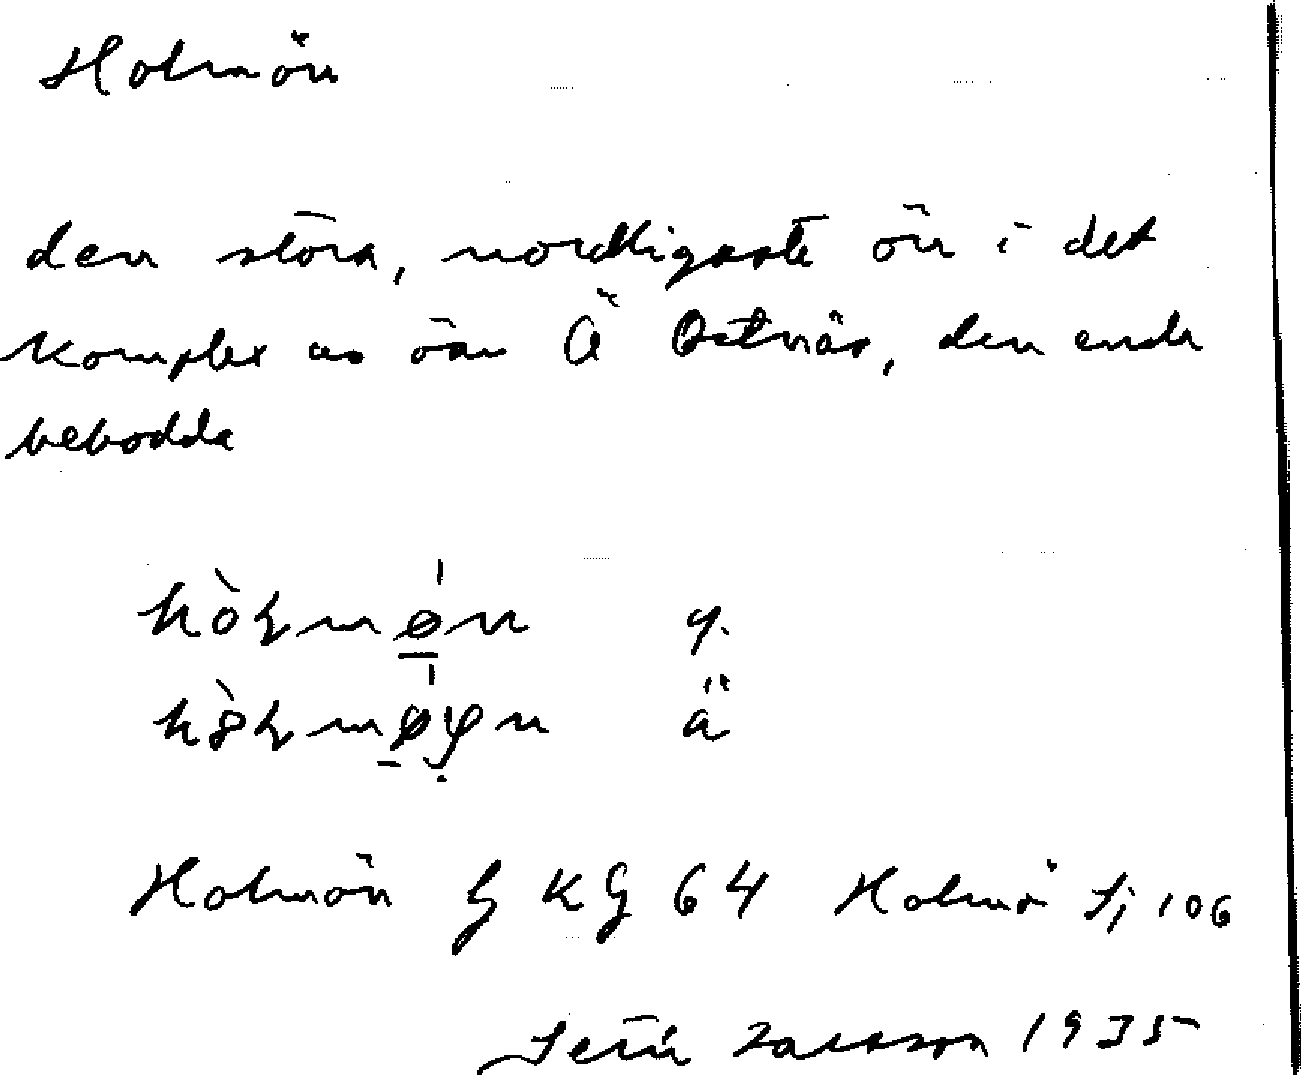 Holmön
den stora, nordligaste ön i det
komplex av öar Ö Ostnäs, den enda
bebodda
y.
ä
Holmön G KG 64 Holmö Sj 106
Larsson 1935